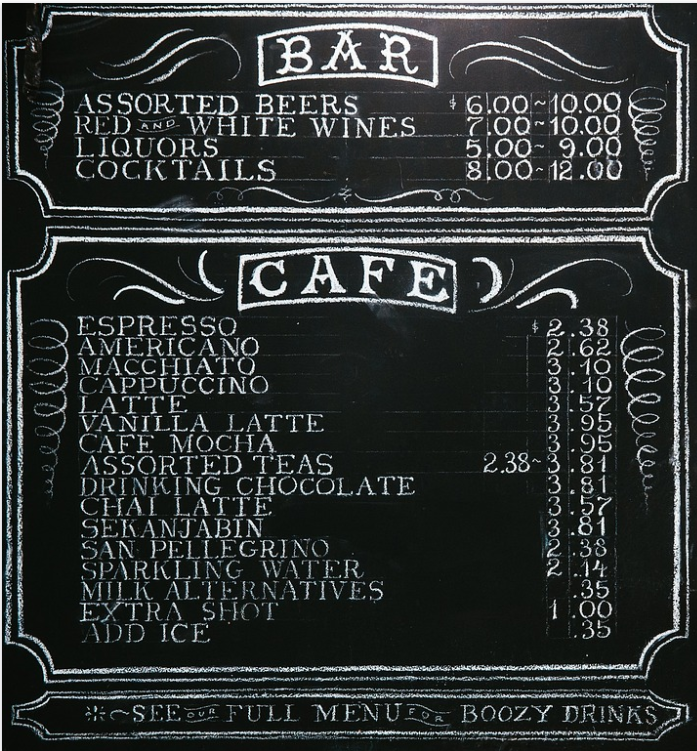 BAR
ASSORTED BEERS $6.00~10.00
RED AND WHITE WINES 7.00~10.00
LIQUORS 5.00~ 9.00
COCKTAILS 8.00~12.00
CAFE
ESPRESSO $2.38
AMERICANO 2.62
MACCHIATO 3.10
CAPPUCCINO 3.10
LATTE 3.57
VANILLA LATTE 3.95
CAFE MOCHA 3.95
ASSORTED TEAS 2.38~3.81
DRINKING CHOCOLATE 3.81
CHAI LATTE 3.57
SEKANJABIN 3.81
SAN PELLEGRINO 2.38
SPARKLING WATER 2.14
MILK ALTERNATIVES .35
EXTRA SHOT 1.00
ADD ICE .35
*~SEE OUR FULL MENU FOR BOOZY DRINKS